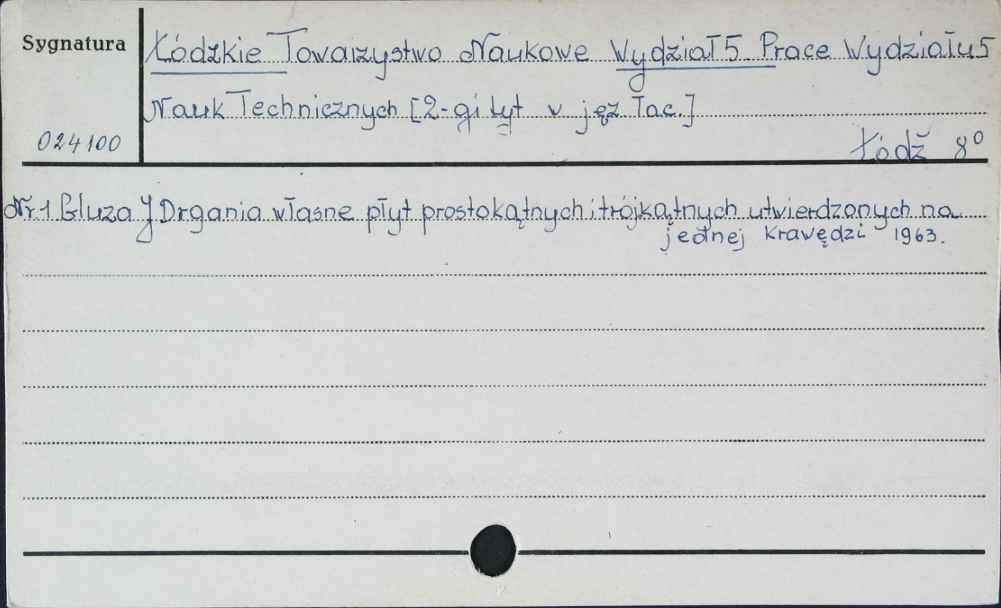 Sygnatura
Łódzkie Towarzystwo Naukowe Wydział 5. Prace Wydziału 5
Nauk Technicznych [2-gi tyt w jęz łac.]
024100
Łódź 8°
Nr 1 Gluza J Drgania własne płyt prostokątnych i trójkątnych utwierdzonych na
jednej krawędzi 1963.